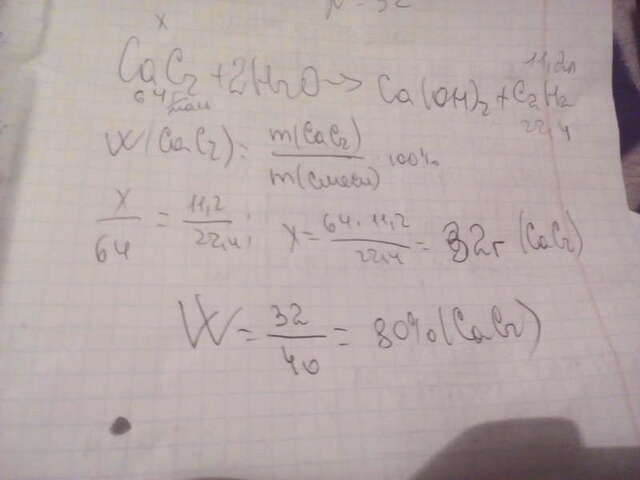 x
11,2л
CaC2 + 2H2O → Ca(OH)2 + C2H2
64 22,4
W(CaC2) = m(CaC2) / m(смеси) · 100%
x/64 = 11,2/22,4; x = 64·11,2/22,4 = 32г (CaC2)
W = 32/40 = 80% (CaC2)